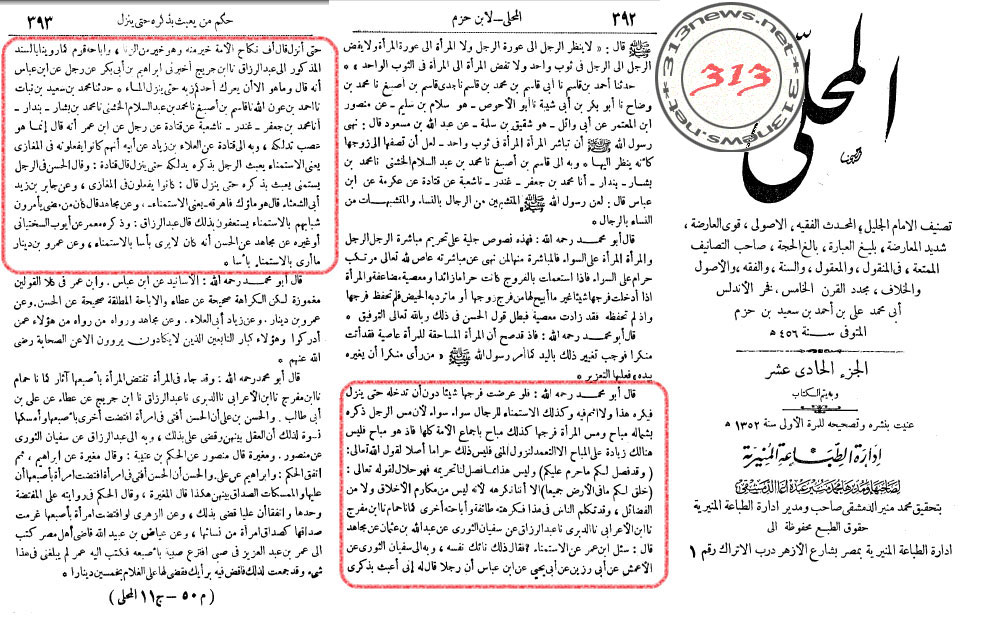 المحلى
313news.net
313
تصنيف الامام الجليل، المحدث الفقيه، الاصولى، قوى العارضة،
شديد المعارضة، بليغ العبارة، بالغ الحجة، صاحب التصانيف
الممتعة، فى المنقول، والمعقول، والسنة، والفقه، والاصول
والخلاف، مجدد القرن الخامس، فخر الأندلس
أبى محمد على بن أحمد بن سعيد بن حزم
المتوفى سنة ٤٥٦ ه
الجزء الحادى عشر
وبه يتم الكتاب
عنيت بنشره وتصحيحه للمرة الاولى سنة ١٣٥٢ ه
إدارة الطباعة المنيرية
لصاحبها ومديرها محمد منير عبده أغا الدمشقى
بتحقيق محمد منير الدمشقى صاحب ومدير ادارة الطباعة المنيرية
حقوق الطبع محفوظة الى
ادارة الطباعة المنيرية بمصر بشارع الأزهر درب الاتراك رقم ١
٣٩٢ المحلى — لابن حزم
ﷺ قال: « لا ينظر الرجل الى عورة الرجل ولا المرأة الى عورة المرأة ولا يفض
الرجل الى الرجل فى ثوب واحد ولا تفض المرأة الى المرأة فى الثوب الواحد »
حدثنا أحمد بن قاسم نا أبى قاسم بن محمد بن قاسم نا جدى قاسم بن أصبغ نا محمد بن
وضاح نا أبو بكر بن أبى شيبة نا أبو الأحوص ـ هو سلام بن سليم ـ عن منصور
ابن المعتمر عن أبى وائل ـ هو شقيق بن سلمة ـ عن عبد الله بن مسعود قال: نهى
رسول الله ﷺ أن تباشر المرأة المرأة فى ثوب واحد ـ لعل أن تصفها الى زوجها
كأنه ينظر اليها * وبه الى قاسم بن أصبغ نا محمد بن عبد السلام الخشنى نا محمد بن
بشار ـ بندار ـ أنا محمد بن جعفر ـ غندر ـ نا شعبة عن قتادة عن عكرمة عن ابن
عباس قال: لعن رسول الله ﷺ المتشبهين من الرجال بالنساء والمتشبهات من
النساء بالرجال *
قال أبو محمد رحمه الله: فهذه نصوص جلية على تحريم مباشرة الرجل الرجل
والمرأة المرأة على السواء. فالمباشرة منها لمن نهى عن مباشرته عاص لله تعالى مرتكب
حرام على السواء. فاذا استعملت بالفروج كانت حراما زائدا ومعصية مضاعفة والمرأة
اذا أدخلت فرجها شيئا غير ما أبيح لها من فرج زوجها أو ما ترد به الحيض فلم تحفظ فرجها
واذ لم تحفظه فقد زادت معصية فبطل قول الحسن فى ذلك وبالله تعالى التوفيق *
قال أبو محمد رحمه الله: فاذ قد صح أن المرأة المساحقة للمرأة عاصية فقد أتت
منكرا فوجب تغيير ذلك باليد كما أمر رسول الله ﷺ « من رأى منكرا أن يغيره
بيده » فعليها التعزير *
قال أبو محمد رحمه الله: فلو عرضت فرجها شيئا دون أن تدخله حتى ينزل
فيكره هذا ولا اثم فيه وكذلك الاستمناء للرجال سواء سواء لأن مس الرجل ذكره
بشماله مباح ومس المرأة فرجها كذلك مباح باجماع الأمة كلها فاذ هو مباح فليس
هنالك زيادة على المباح الا التعمد لنزول المنى فليس ذلك حراما أصلا لقول الله تعالى:
(وقد فصل لكم ما حرم عليكم) وليس هذا مما فصل لنا تحريمه فهو حلال لقوله تعالى:
(خلق لكم ما فى الأرض جميعا) الا أننا نكرهه لأنه ليس من مكارم الأخلاق ولا من
الفضائل، وقد تكلم الناس فى هذا فكرهته طائفة وأباحته أخرى كما نا حمام نا ابن مفرج
نا ابن الأعرابى نا الدبرى نا عبد الرزاق عن سفيان الثورى عن عبد الله بن عثمان عن مجاهد
قال: سئل ابن عمر عن الاستمناء؟ فقال ذلك نائك نفسه، وبه الى سفيان الثورى عن
الأعمش عن أبى رزين عن أبى يحيى عن ابن عباس أن رجلا قال له إنى أعبث بذكرى
حكم من يعبث بذكره حتى ينزل ٣٩٣
حتى أنزل قال أف نكاح الأمة خير منه وهو خير من الزنا، واباحه قوم كما روينا بالسند
المذكور الى عبد الرزاق نا ابن جريج أخبرنى ابراهيم بن أبى بكر عن رجل عن ابن عباس
أنه قال وما هو الا أن يعرك أحدكم زبه حتى ينزل الماء * حدثنا محمد بن سعيد بن نبات
نا احمد بن عون الله نا قاسم بن أصبغ نا محمد بن عبد السلام الخشنى نا محمد بن بشار ـ بندار ـ
أنا محمد بن جعفر ـ غندر ـ نا شعبة عن قتادة عن رجل عن ابن عمر أنه قال إنما هو
عصب تدلكه، وبه الى قتادة عن العلاء بن زياد عن أبيه أنهم كانوا يفعلونه فى المغازى
يعنى الاستمناء يعبث الرجل بذكره يدلكه حتى ينزل قال قتادة: وقال الحسن فى الرجل
يستمنى يعبث بذكره حتى ينزل قال: كانوا يفعلون فى المغازى، وعن جابر بن زيد
أبى الشعثاء قال هو ماؤك فاهرقه ـ يعنى الاستمناء ـ وعن مجاهد قال كان من مضى يأمرون
شبابهم بالاستمناء يستعفون بذلك قال عبد الرزاق: وذكره معمر عن أيوب السختيانى
أو غيره عن مجاهد عن الحسن أنه كان لا يرى بأسا بالاستمناء، وعن عمرو بن دينار
ما أرى بالاستمناء بأسا *
قال أبو محمد رحمه الله: الأسانيد عن ابن عباس. وابن عمر فى كلا القولين
مغموزة لكن الكراهة صحيحة عن عطاء والاباحة المطلقة صحيحة عن الحسن. وعن
عمرو بن دينار. وعن زياد أبى العلاء. وعن مجاهد ورواه من رواه من هؤلاء عمن
أدركوا وهؤلاء كبار التابعين الذين لا يكادون يروون الا عن الصحابة رضى
الله عنهم *
قال أبو محمد رحمه الله: وقد جاء فى المرأة تفتض المرأة بأصبعها آثار كما نا حمام
نا ابن مفرج نا ابن الأعرابى نا الدبرى نا عبد الرزاق نا ابن جريج عن عطاء عن على بن
أبى طالب. والحسن بن على أن الحسن أفتى فى امرأة افتضت أخرى بأصبعها وأمسكها
نسوة لذلك أن العقل بينهن وقضى على بذلك، وبه الى عبد الرزاق عن سفيان الثورى
عن منصور. ومغيرة قال منصور عن الحكم بن عتيبة: وقال مغيرة عن ابراهيم، ثم
اتفق الحكم: وابراهيم عن على. والحسن أن الحسن أفتى فى امرأة افتضت امرأة بأصبعها أن
عليها والممسكات الصداق بينهن هكذا قال المغيرة، وقال الحكم فى روايته على المفتضة
وحدها واتفقا أن عليا قضى بذلك، وعن الزهرى لو افتضت امرأة بأصبعها غرمت
صداقها كصداق امرأة من نسائها، وعن عياض بن عبيد الله قاضى أهل مصر كتب
الى عمر بن عبد العزيز فى صبى افترع صبية بأصبعه فكتب اليه عمر لم يبلغنى فى هذا
شىء وقد جمعت لذلك فاقض فيه برأيك فقضى لها على الغلام بخمسين دينارا *
(م ٥٠ — ج ١١ المحلى)